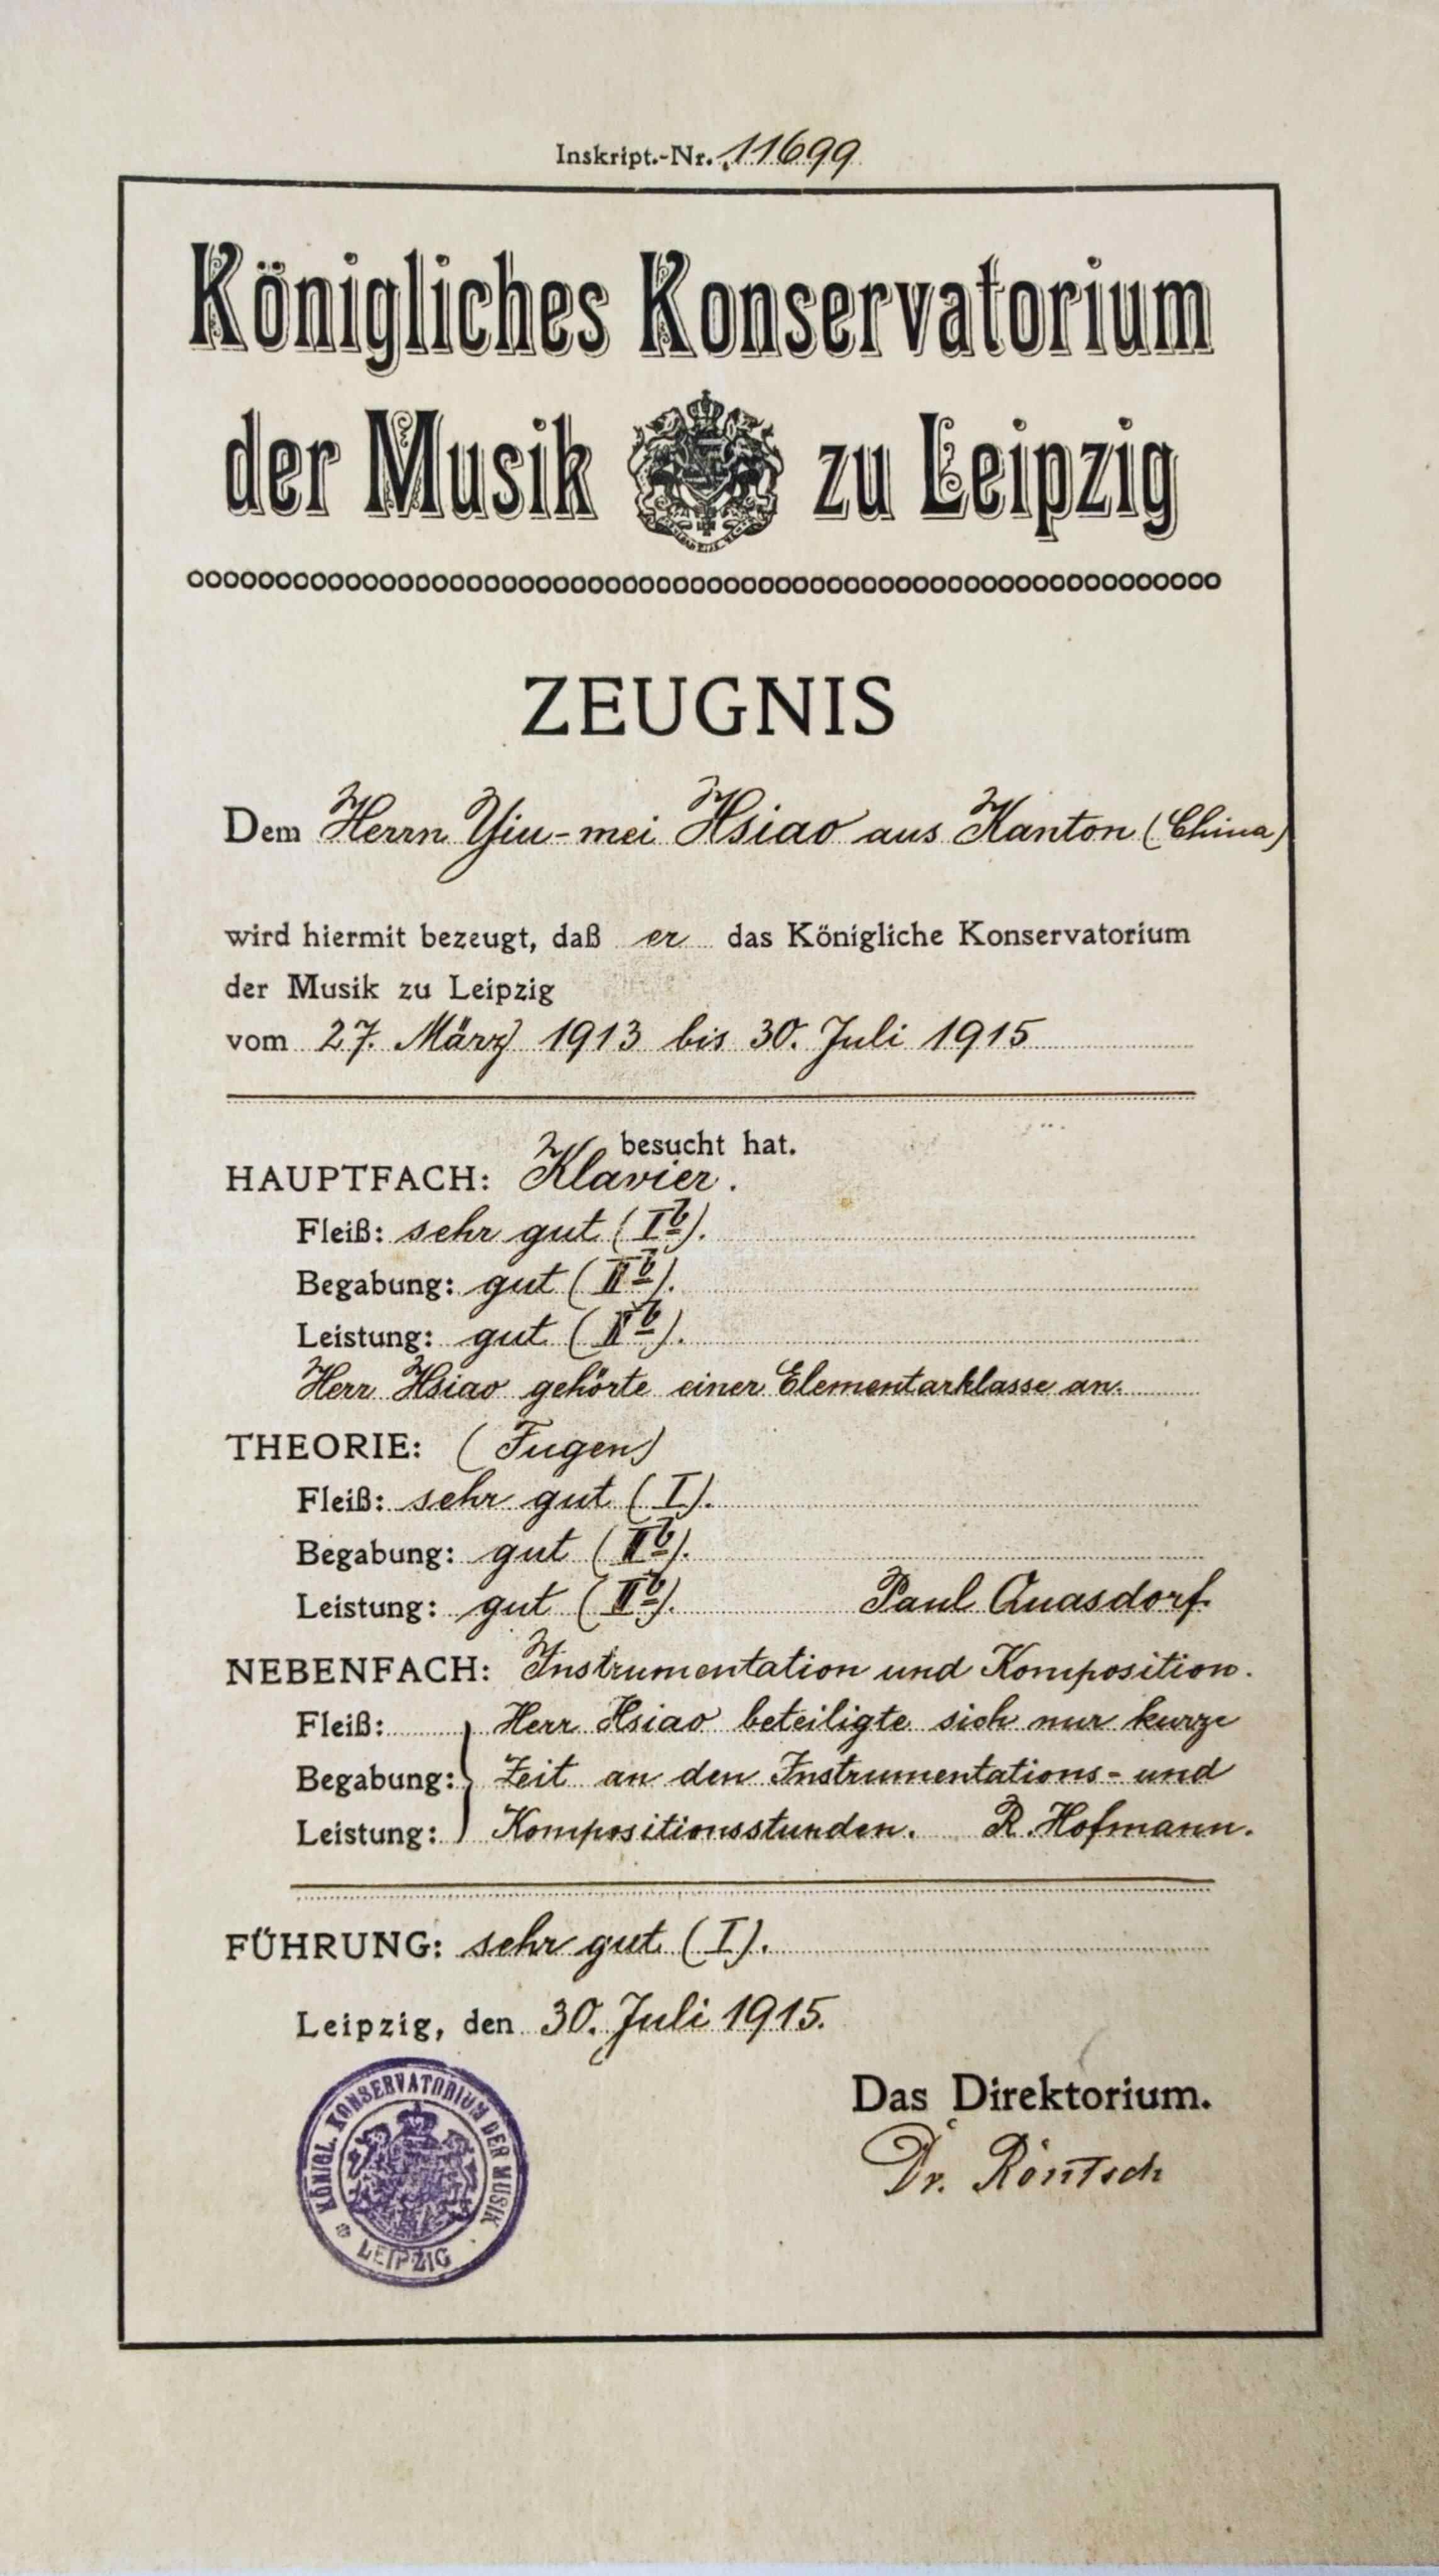 Inskript.-Nr. 11699
Königliches Konservatorium
der Musik zu Leipzig
ZEUGNIS
Dem Herrn Yiu-mei Hsiao aus Kanton (China)
wird hiermit bezeugt, daß er das Königliche Konservatorium
der Musik zu Leipzig
vom 27. März 1913 bis 30. Juli 1915
besucht hat.
HAUPTFACH: Klavier.
Fleiß: sehr gut (Ib).
Begabung: gut (IIb).
Leistung: gut (IIb).
Herr Hsiao gehörte einer Elementarklasse an.
THEORIE: (Fugen)
Fleiß: sehr gut (I).
Begabung: gut (IIb).
Leistung: gut (IIb). Paul Quasdorf
NEBENFACH: Instrumentation und Komposition.
Fleiß: Herr Hsiao beteiligte sich nur kurze
Begabung: Zeit an den Instrumentations- und
Leistung: Kompositionsstunden. R. Hofmann.
FÜHRUNG: sehr gut (I).
Leipzig, den 30. Juli 1915.
Das Direktorium.
Dr. Röntsch
KÖNIGL. KONSERVATORIUM DER MUSIK
LEIPZIG